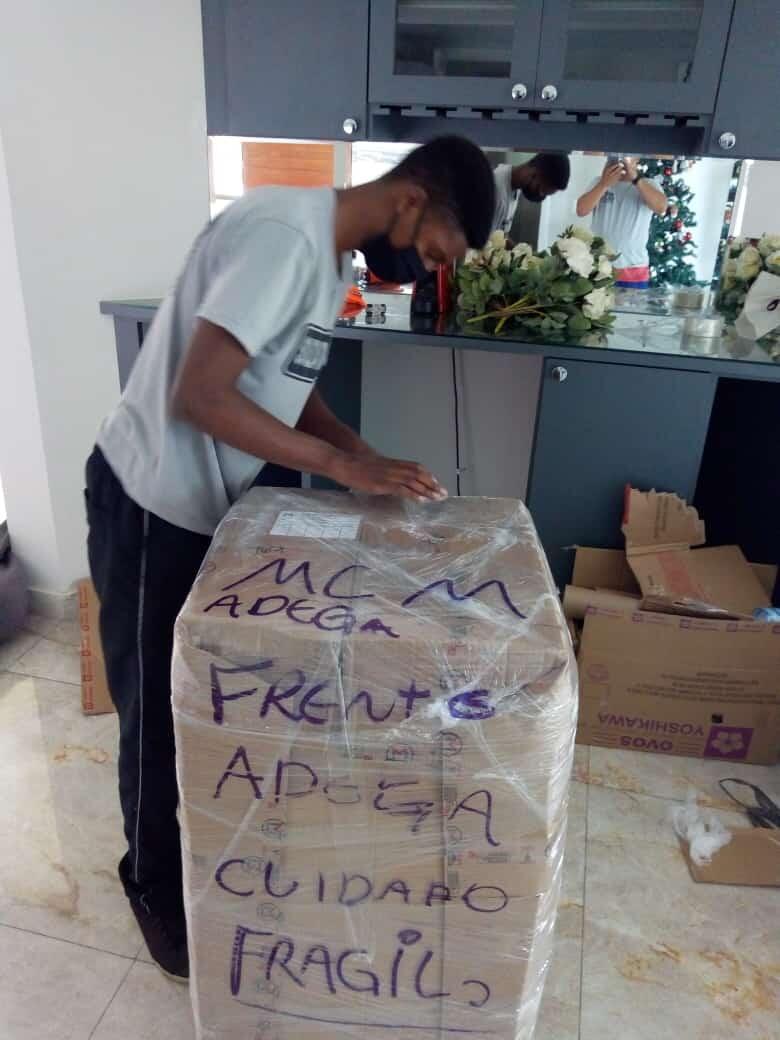 MCM
ADEGA
FRENTE
ADEGA
CUIDADO
FRAGIL
OVOS
YOSHIKAWA